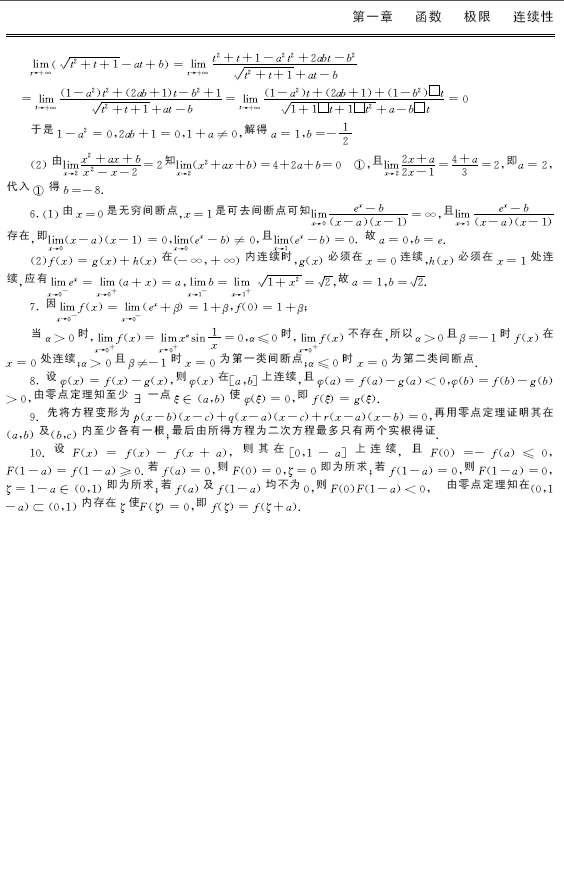 第一章 函数 极限 连续性
lim_{t→+∞}(√(t²+t+1)−at+b) = lim_{t→+∞} (t²+t+1−a²t²+2abt−b²)/(√(t²+t+1)+at−b)
= lim_{t→+∞} ((1−a²)t²+(2ab+1)t−b²+1)/(√(t²+t+1)+at−b) = lim_{t→+∞} ((1−a²)t+(2ab+1)+(1−b²)□t)/(√(1+1□t+1□t²)+a−b□t) = 0
于是 1−a² = 0,2ab+1 = 0,1+a ≠ 0,解得 a = 1,b =− 1/2
(2) 由 lim_{x→2} (x²+ax+b)/(x²−x−2) = 2 知 lim_{x→2}(x²+ax+b) = 4+2a+b = 0 ①,且 lim_{x→2} (2x+a)/(2x−1) = (4+a)/3 = 2,即 a = 2,
代入 ① 得 b =−8.
6.(1) 由 x = 0 是无穷间断点,x = 1 是可去间断点可知 lim_{x→0} (eˣ−b)/((x−a)(x−1)) = ∞,且 lim_{x→1} (eˣ−b)/((x−a)(x−1))
存在,即 lim_{x→0}(x−a)(x−1) = 0,lim_{x→0}(eˣ−b) ≠ 0,且 lim_{x→1}(eˣ−b) = 0. 故 a = 0,b = e.
(2) f(x) = g(x)+h(x) 在(−∞,+∞) 内连续时,g(x) 必须在 x = 0 连续,h(x) 必须在 x = 1 处连
续,应有 lim_{x→0⁻} eˣ = lim_{x→0⁺}(a+x) = a,lim_{x→1⁻} b = lim_{x→1⁺} √(1+x²) = √2,故 a = 1,b =√2.
7. 因 lim_{x→0⁻} f(x) = lim_{x→0⁻}(eˣ+β) = 1+β,f(0) = 1+β;
当 α > 0 时,lim_{x→0⁺} f(x) = lim_{x→0⁺} xᵅ sin 1/x = 0,α ≤ 0 时,lim_{x→0⁺} f(x) 不存在,所以 α > 0 且 β =−1 时 f(x) 在
x = 0 处连续;α > 0 且 β ≠−1 时 x = 0 为第一类间断点;α ≤ 0 时 x = 0 为第二类间断点.
8. 设 φ(x) = f(x)−g(x),则 φ(x) 在[a,b] 上连续,且 φ(a) = f(a)−g(a) < 0,φ(b) = f(b)−g(b)
> 0,由零点定理知至少 ∃ 一点 ξ ∈ (a,b) 使 φ(ξ) = 0,即 f(ξ) = g(ξ).
9. 先将方程变形为 p(x−b)(x−c)+q(x−a)(x−c)+r(x−a)(x−b) = 0,再用零点定理证明其在
(a,b) 及(b,c) 内至少各有一根;最后由所得方程为二次方程最多只有两个实根得证.
10. 设 F(x) = f(x) − f(x + a), 则其在 [0,1 − a] 上连续, 且 F(0) =− f(a) ≤ 0,
F(1−a) = f(1−a) ≥ 0. 若 f(a) = 0,则 F(0) = 0,ζ = 0 即为所求;若 f(1−a) = 0,则 F(1−a) = 0,
ζ = 1−a ∈ (0,1) 即为所求;若 f(a) 及 f(1−a) 均不为 0,则 F(0)F(1−a) < 0, 由零点定理知在(0,1
−a) ⊂ (0,1) 内存在 ζ 使F(ζ) = 0,即 f(ζ) = f(ζ+a).